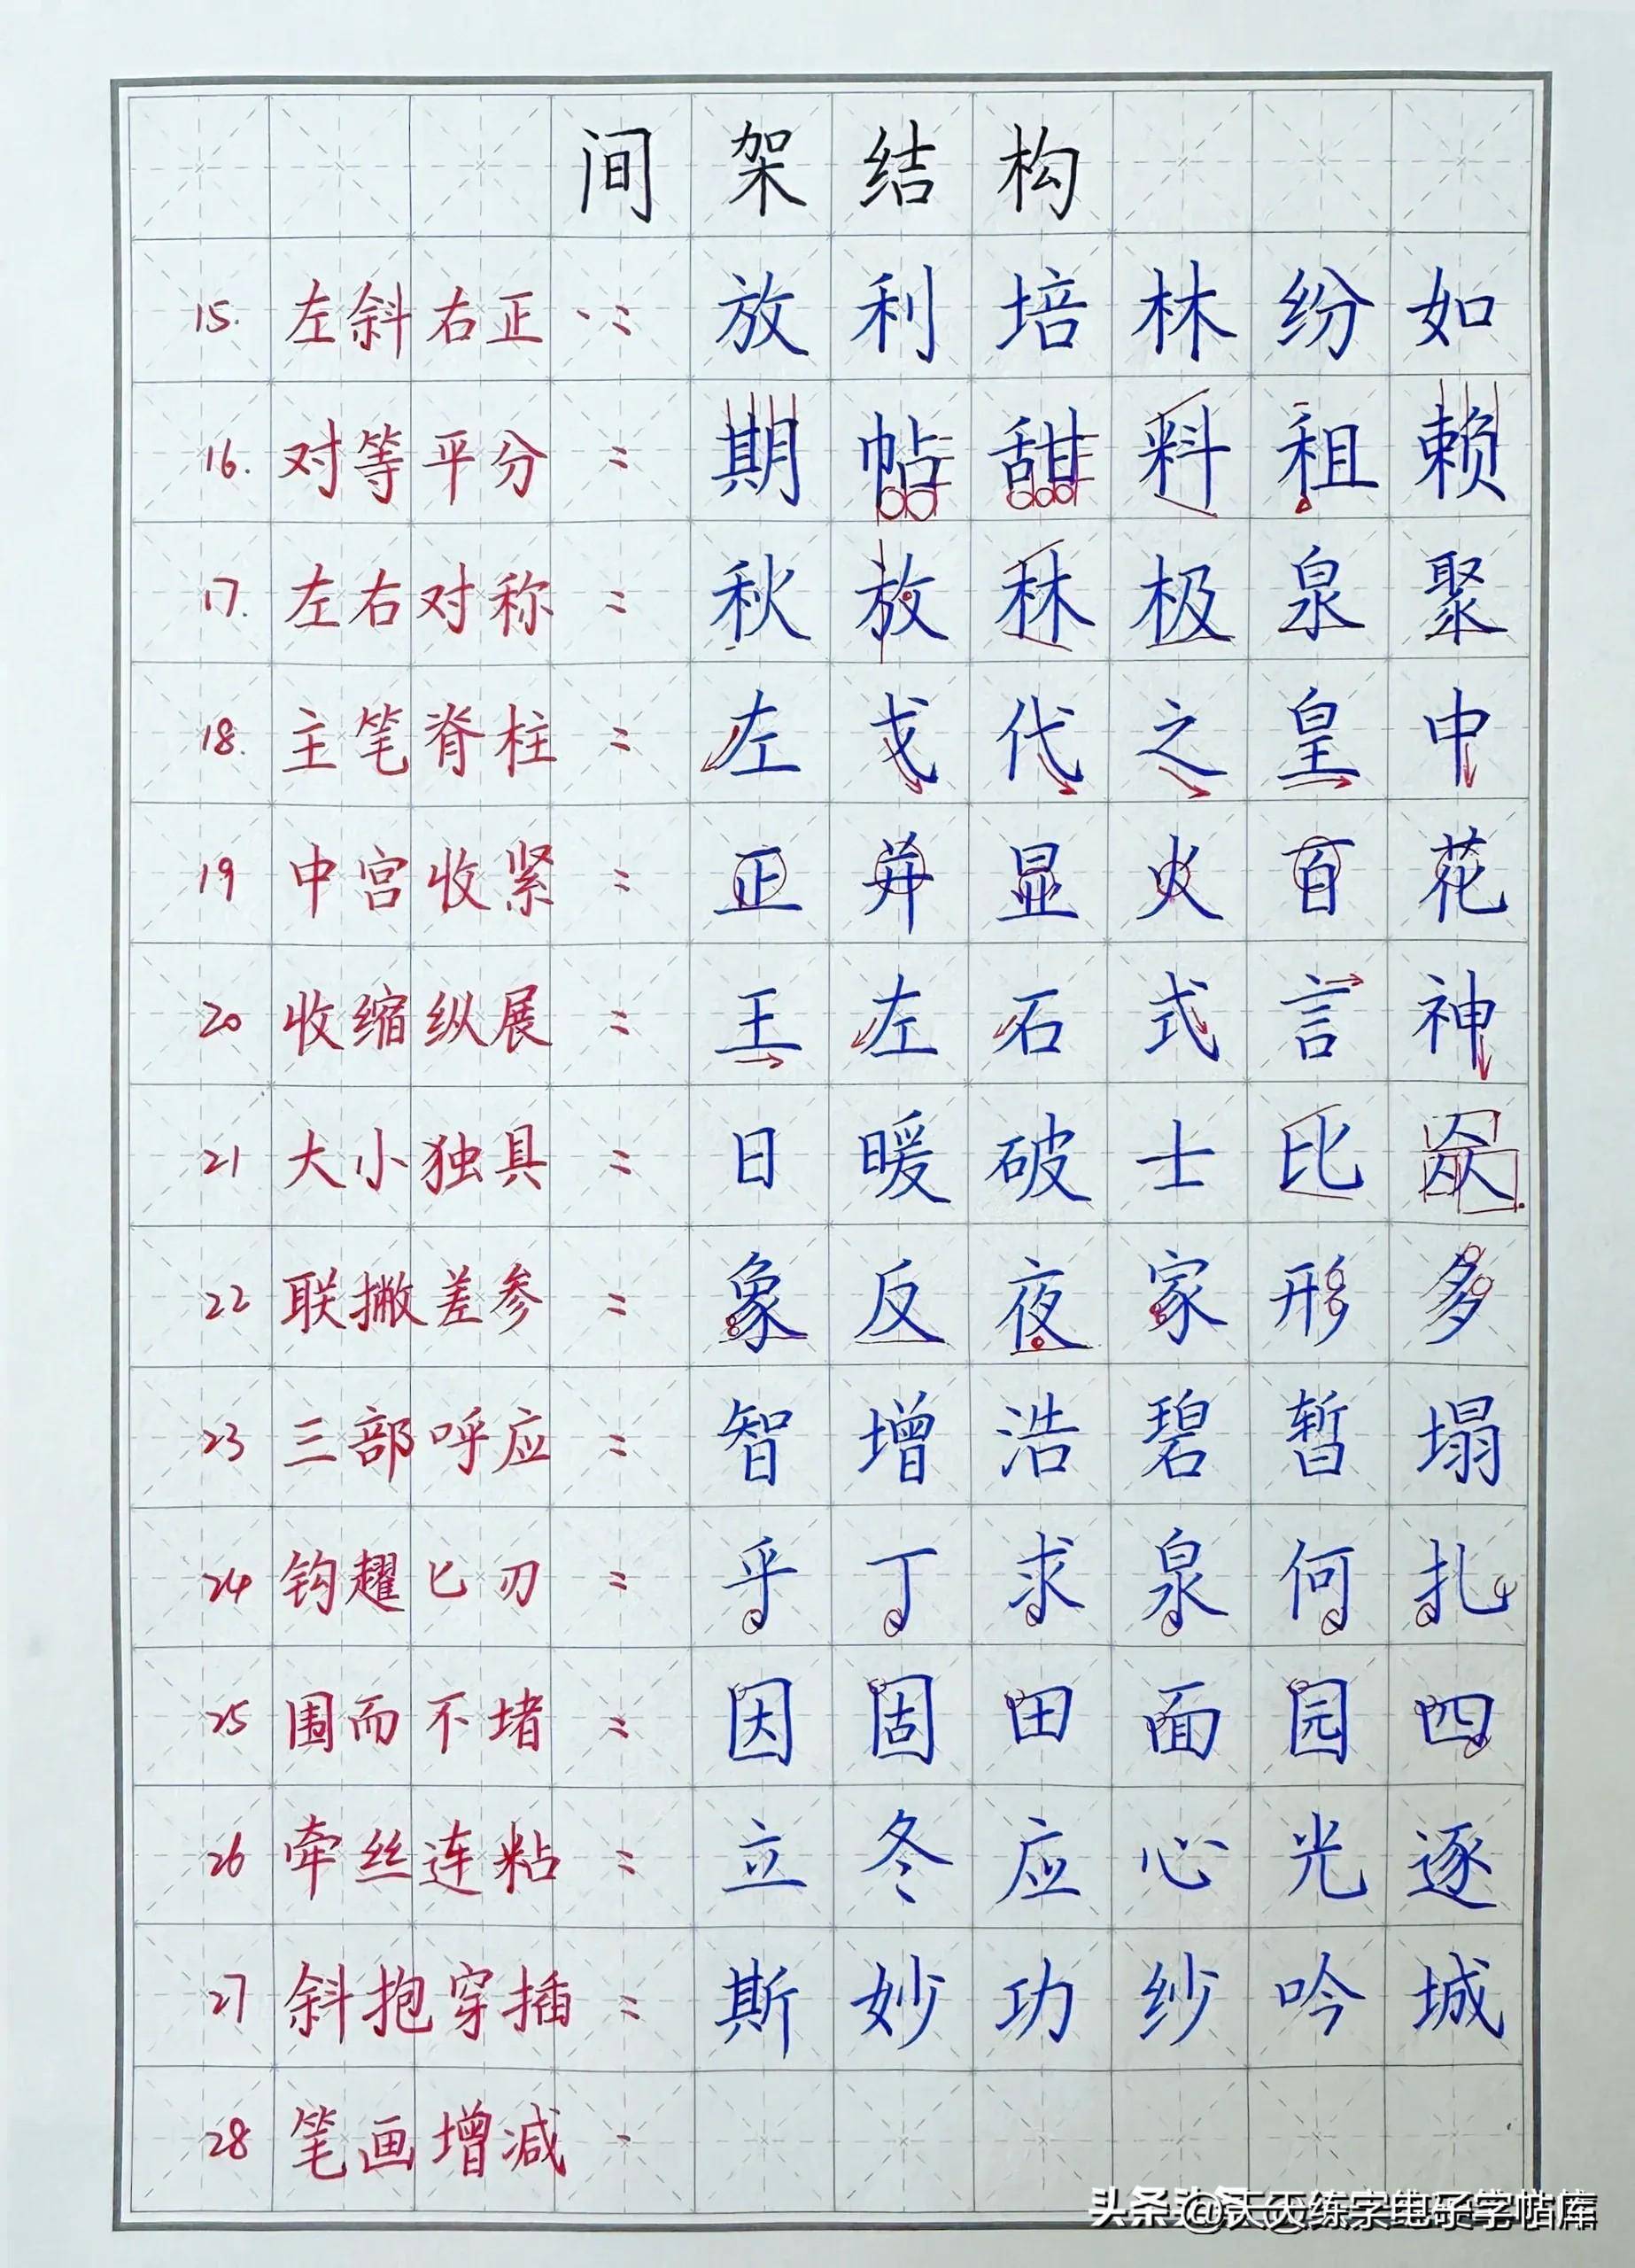 间架结构
15. 左斜右正 : 放利培林纷如
16. 对等平分 : 期帖甜料租赖
17. 左右对称 : 秋放林极泉聚
18. 主笔脊柱 : 左戈代之皇中
19 中宫收紧 : 正并显火百花
20 收缩纵展 : 王左石式言神
21 大小独具 : 日暖破士比众
22 联撇差参 : 象反夜家形多
23 三部呼应 : 智增浩碧暂塌
24 钩趯匕刃 : 乎丁求泉何扎
25 围而不堵 : 因固田面园四
26 牵丝连粘 : 立冬应心光逐
27 斜抱穿插 : 斯妙功纱吟城
28 笔画增减
头条@天天练字电子字帖库